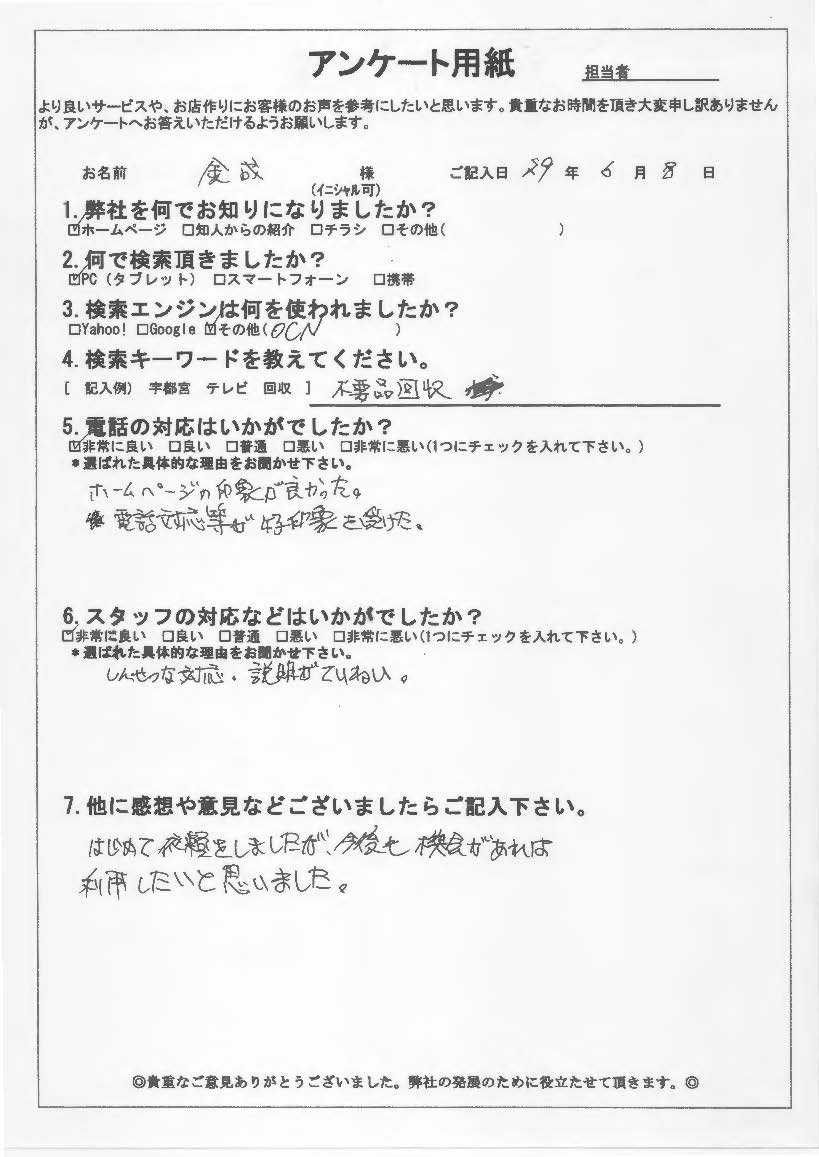 アンケート用紙
担当者
より良いサービスや、お店作りにお客様のお声を参考にしたいと思います。貴重なお時間を頂き大変申し訳ありません
が、アンケートへお答えいただけるようお願いします。
お名前 金成 様 ご記入日 29 年 6 月 8 日
(イニシャル可)
1. 弊社を何でお知りになりましたか？
☑ホームページ □知人からの紹介 □チラシ □その他( )
2. 何で検索頂きましたか？
☑PC（タブレット） □スマートフォーン □携帯
3. 検索エンジンは何を使われましたか？
□Yahoo! □Google ☑その他(OCN )
4. 検索キーワードを教えてください。
[ 記入例） 宇都宮 テレビ 回収 ] 不要品回収
5. 電話の対応はいかがでしたか？
☑非常に良い □良い □普通 □悪い □非常に悪い(1つにチェックを入れて下さい。)
＊選ばれた具体的な理由をお聞かせ下さい。
ホームページの印象が良かった。
電話対応等が好印象を受けた。
6. スタッフの対応などはいかがでしたか？
☑非常に良い □良い □普通 □悪い □非常に悪い(1つにチェックを入れて下さい。)
＊選ばれた具体的な理由をお聞かせ下さい。
しんせつな対応、説明がていねい。
7. 他に感想や意見などございましたらご記入下さい。
はじめて依頼をしましたが、今後も機会があれば
利用したいと思いました。
◎貴重なご意見ありがとうございました。弊社の発展のために役立たせて頂きます。◎